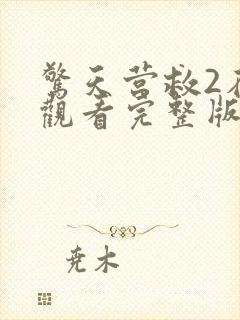 驚天营救2在
觀看完整版
尧木